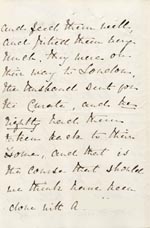 and feed them well,
and pitied them very
much, they were on
their way to London,
the husband sent for
the Curate, and he
rightly had them
taken back to their
home, and that is
the course that should
we think have been
done with A